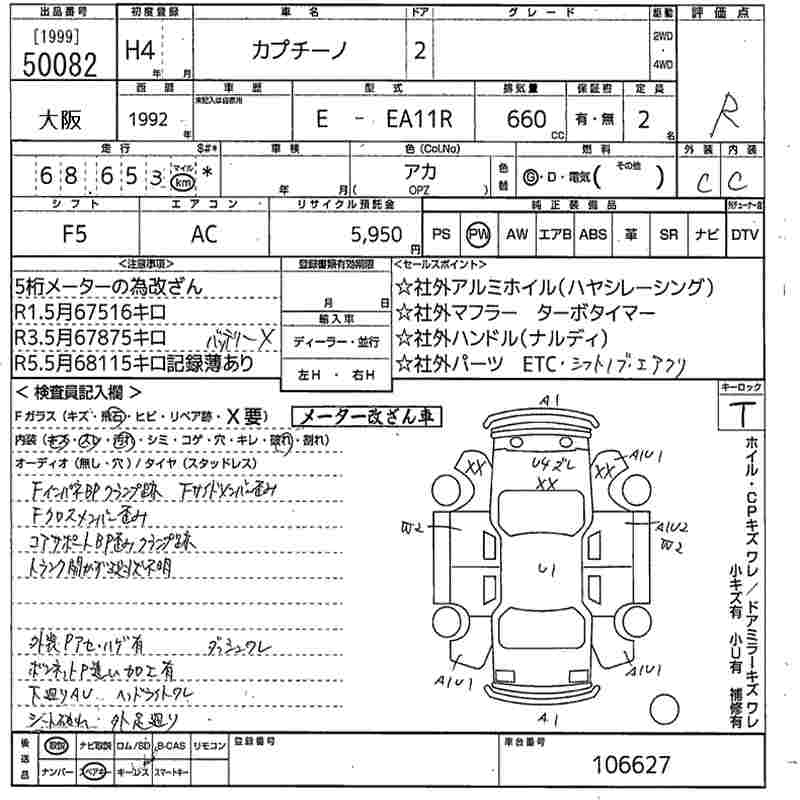 出品番号 初度登録 車名 ドア グレード 駆動 評価点
[1999] 50082 H4 年 月 カプチーノ 2 2WD ・ 4WD R
大阪 西暦 1992 年 車歴 未記入は自家用 型式 E - EA11R 排気量 660 CC 保証書 有・無 定員 2 名
走行 S#* 車検 色(Col.No) 色替 燃料 外装 内装
68,653 マイル km * 年 月 アカ ( OPZ ) G・D・電気( その他 ) C C
シフト エアコン リサイクル預託金 純正装備品
F5 AC 5,950 円 PS PW AW エアB ABS 革 SR ナビ DTV
<注意事項> 登録書類有効期限 <セールスポイント>
5桁メーターの為改ざん 月 日 ☆社外アルミホイル(ハヤシレーシング)
R1.5月67516キロ 輸入車 ☆社外マフラー ターボタイマー
R3.5月67875キロ バッテリーX ディーラー・並行 ☆社外ハンドル(ナルディ)
R5.5月68115キロ記録薄あり 左H・右H ☆社外パーツ ETC・シフトノブ・エアクリ
<検査員記入欄> キーロック
Fガラス(キズ・飛石・ヒビ・リペア跡・X要) メーター改ざん車 T
内装(キズ・スレ・汚れ・シミ・コゲ・穴・キレ・破れ・割れ)
オーディオ(無し・穴)/タイヤ(スタッドレス)
FインパネBPクランプ跡 Fサイドメンバー歪み
Fクロスメンバー歪み
コアサポートBP歪みクランプ跡
トランク開かず 不明
外装Pアセ・ハゲ有 ダッシュワレ
ボンネットP違い加工有
下廻りAU ヘッドライトワレ
シート破れ 外足廻り
A1
U4 ズレ
XX XX XX A1U1
W2 A1U2
W2
U1
A1U1 A1U1
A1
ホイル・CPキズワレ/ドアミラーキズワレ
小キズ有 小U有 補修有
後送品 取説 ナビ取説 ロム/SD B-CAS リモコン 登録番号 車台番号
ナンバー スペアキー キーレス スマートキー 106627